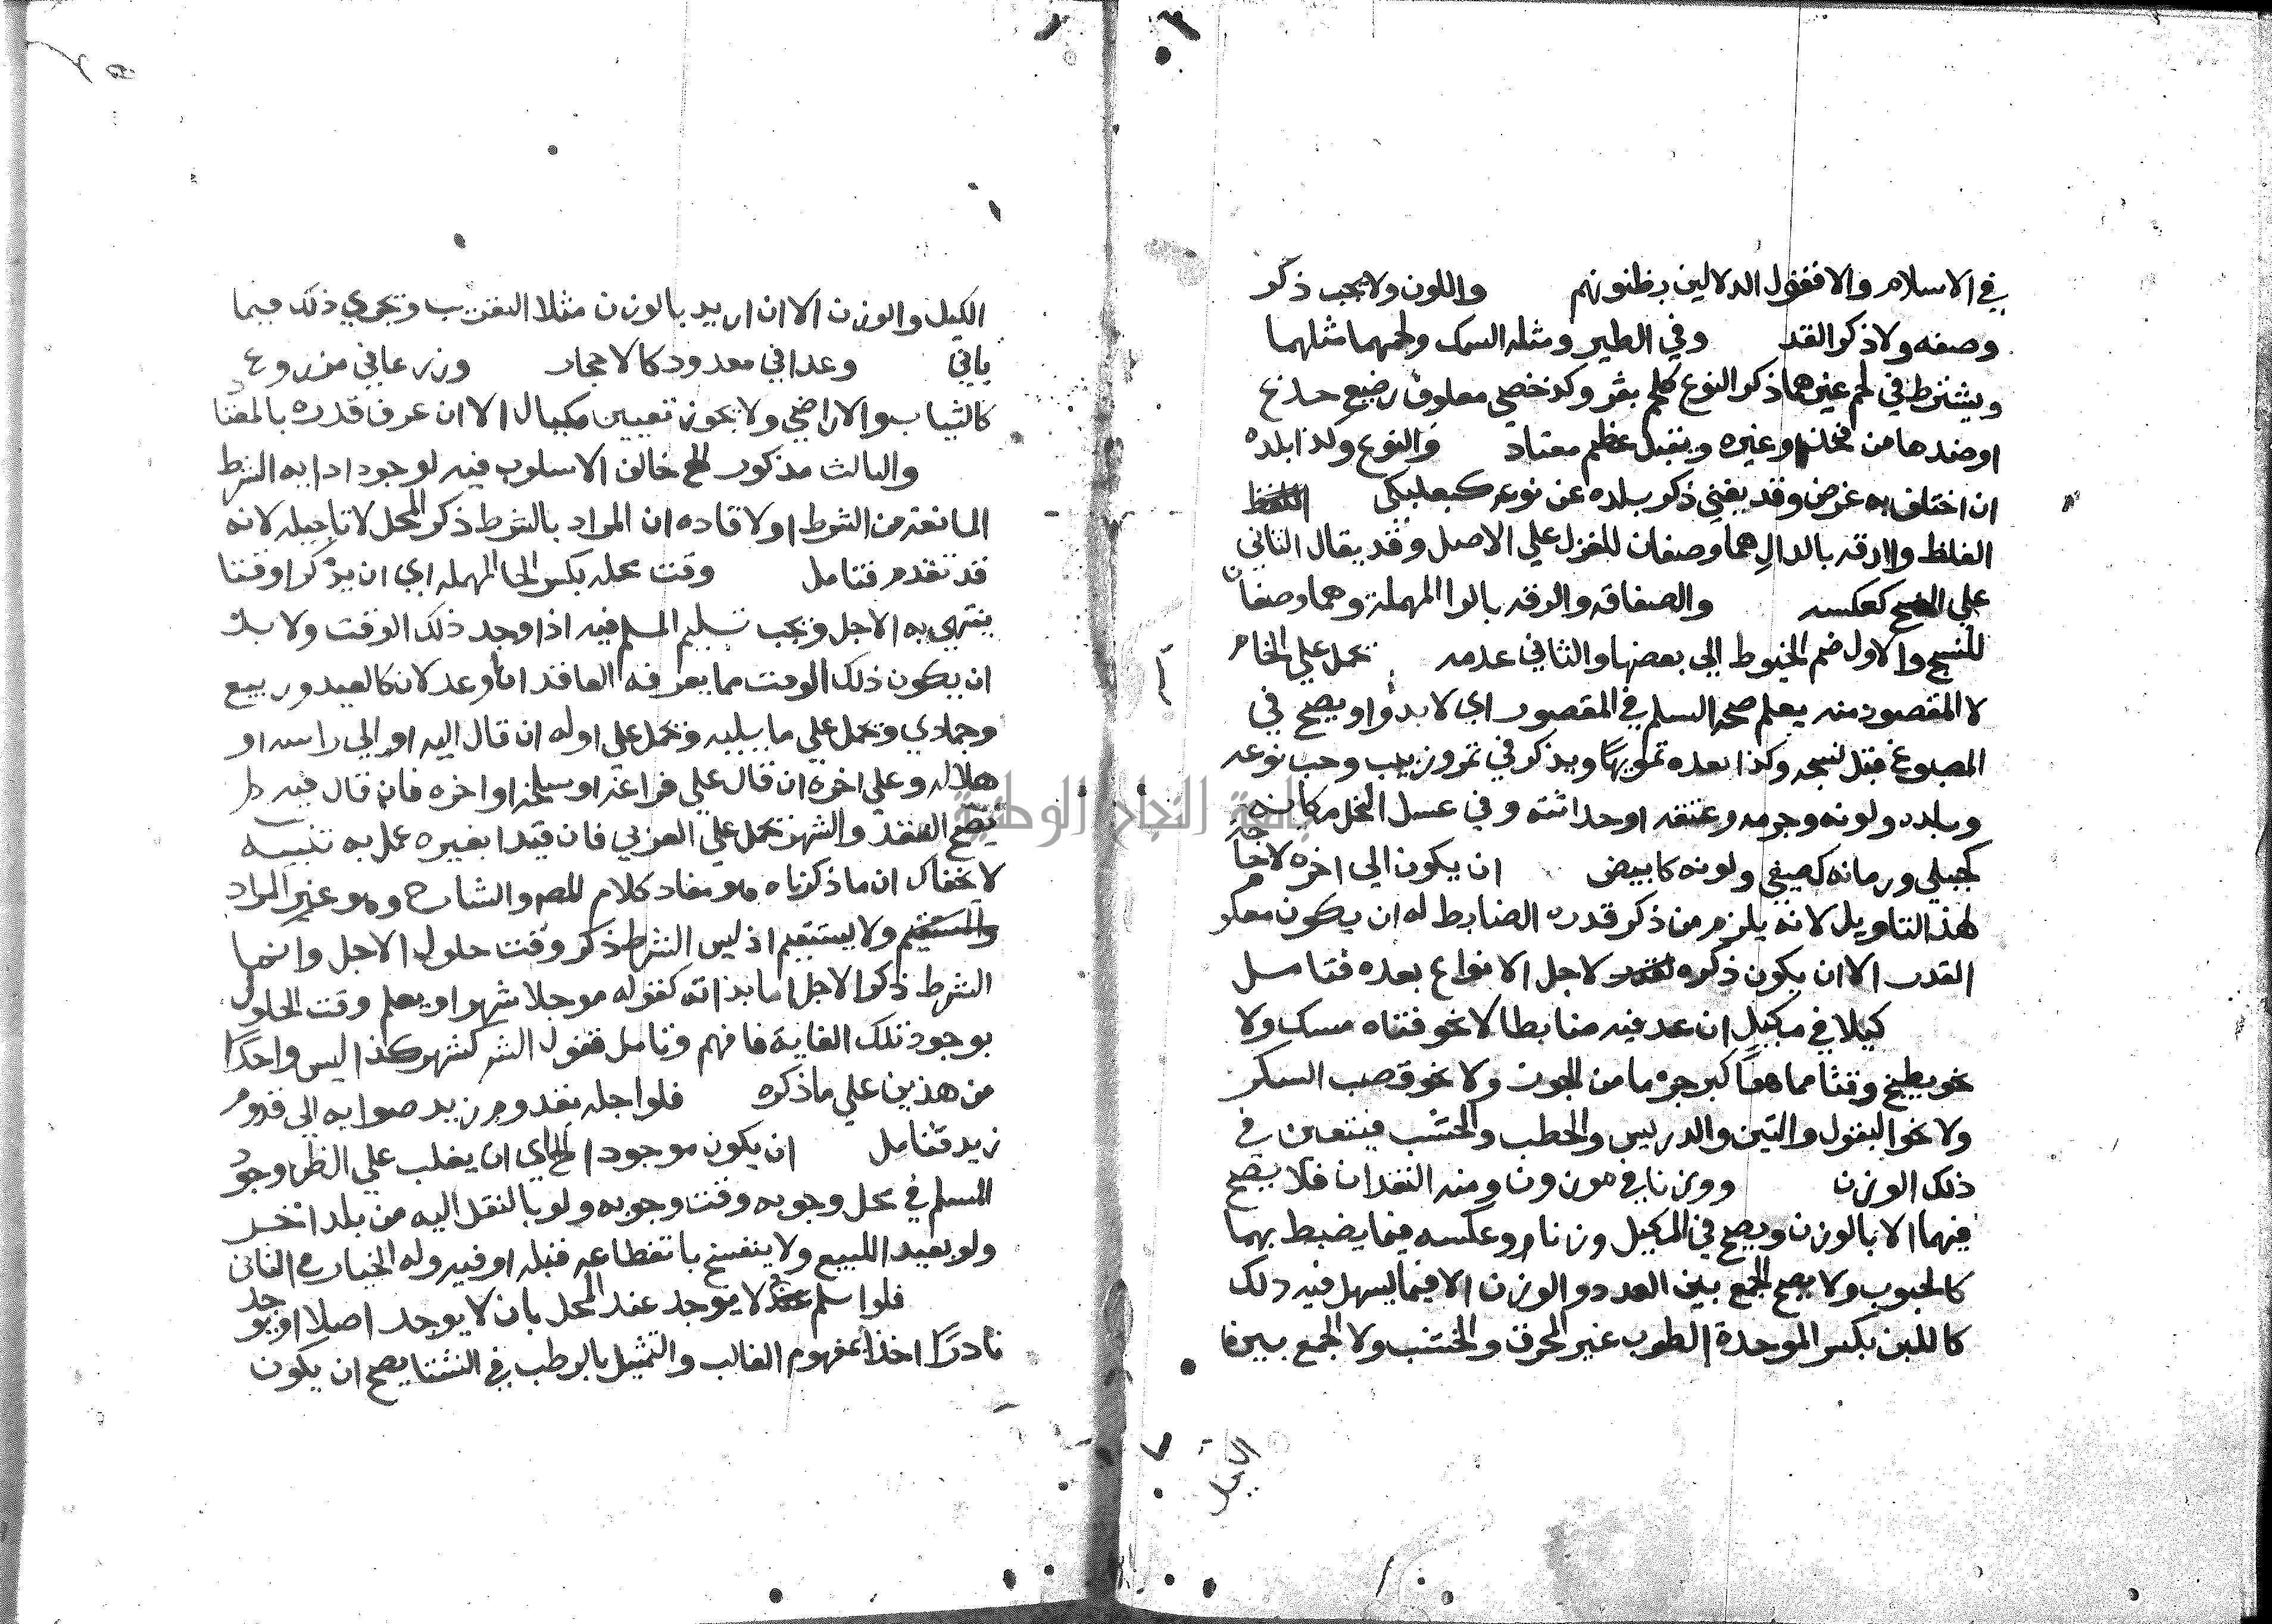 في الاسلام والا فقول الدلالين بظنونهم واللون ولا يجب ذكر
وصفه ولا ذكر القد وفي الطير ومثله السمك ولحمهما مثلهما
ويشترط في لحم غيرهما ذكر النوع كلحم بقر وكذ خصي معلوف رضيع جذع
او ضدها من فخذ او غيره ويقبل عظم معتاد والنوع وكذا بلده
ان اختلف به غرض وقد يغني ذكر بلده عن نوعه كبعلبكي
الغلظ والدقه بالدال هما وصفان للغزل علي الاصل وقد يقال الثاني
علي النسج كعكسه والصفاقه والرقه بالرا المهملة وهما وصفان
للنسج والاول ضم الخيوط الي بعضها والثاني عدمه يحمل علي الخام
لا المقصود منه يعلم صحة السلم في المقصور اي لا بدوا ويصح في
المصبوغ قبل نسجه وكذا بعده تمويها ويذكر في تمر وزبيب وحب نوعه
وبلده ولونه وجرمه وعتقه او حداثته وفي عسل النحل مكانه
كجبلي وزمانه كصيفي ولونه كابيض ان يكون الي اخره لا حاجة
لهذا التاويل لانه يلزم من ذكر قدره الضابط له ان يكون معلوم
القدر الا ان يكون ذكره لاجل الانواع بعده فتامل
كيلا في مكيل ان عد فيه ضابطا لا نحو فتاه مسك ولا
نحو بطيخ وقثا مما هو اكبر جرما من الجوز ولا نحو قصب السكر
ولا نحو البقول والتين والدريس والحطب والخشب فيتعين في
ذلك الوزن ووزنا في موزون ومنه النقدان فلا يصح
فيهما الا بالوزن ويصح في المكيل وزنا وعكسه فيما يضبط بهما
كالحبوب ولا يصح الجمع بين العدد والوزن الا فيما يسهل فيه ذلك
كاللبن بكسر الموحدة الطوب غير المحرق والخشب ولا الجمع بين
الكيل
الكيل والوزن الا ان اريد بالوزن مثلا التقريب ويجري ذلك فيما
ياتي وعدا في معدود كالاحجار وزرعا في مزروع
كالثياب والاراضي ولا يجوز تعيين مكيال الا ان عرف قدره بالمعتاد
والثالث مذكور الخ خالف الاسلوب فيه لوجود اداه الشرط
المانعة من الشرط او لافاده ان المراد بالشرط ذكر المحل لا تاجيله لانه
قد تقدم فتامل وقت محله بكسر الحا المهمله اي ان يذكرا وقتا
ينتهي به الاجل ويجب تسليم المسلم فيه اذا وجد ذلك الوقت ولا بد
ان يكون ذلك الوقت مما يعرفه العاقدان او عدلان كالعيد وربيع
وجمادي ويحمل علي ما يليه ويحمل علي اوله ان قال اليه او الي راسه او
هلاله وعلي اخره ان قال علي فراغه او سلخه او اخره فان قال فيه لم
يصح العقد والشهر يحمل علي العربي فان قيدا بغيره عمل به تنبيه
لا يخفاك ان ما ذكرناه هو مفاد كلام المص والشارح وهو غير المراد
ولا يستقيم اذ ليس الشرط ذكر وقت حلول الاجل وانما
الشرط ذكر الاجل اما بذاته كقوله موجلا شهرا ويعلم وقت الحلول
بوجود تلك الغاية فافهم وتامل فقول الش كشهر كذا ليس واحدا
من هذين علي ما ذكره فلو اجله بقدوم زيد صوابه الي قدوم
زيد فتامل ان يكون موجودا الخ اي ان يغلب علي الظن وجود
المسلم في محل وجوبه وقت وجوبه ولو بالنقل اليه من بلد اخر
ولو بعيد اللبيع ولا ينفسخ بانقطاعه قبله او فيه وله الخيار في الثاني
فلو اسلم لا يوجد عند المحل بان لا يوجد اصلا او يوجد
نادرا اخذا بمفهوم الغالب والتمثيل بالرطب في الشتا يصح ان يكون
جامعة النجاح الوطنية